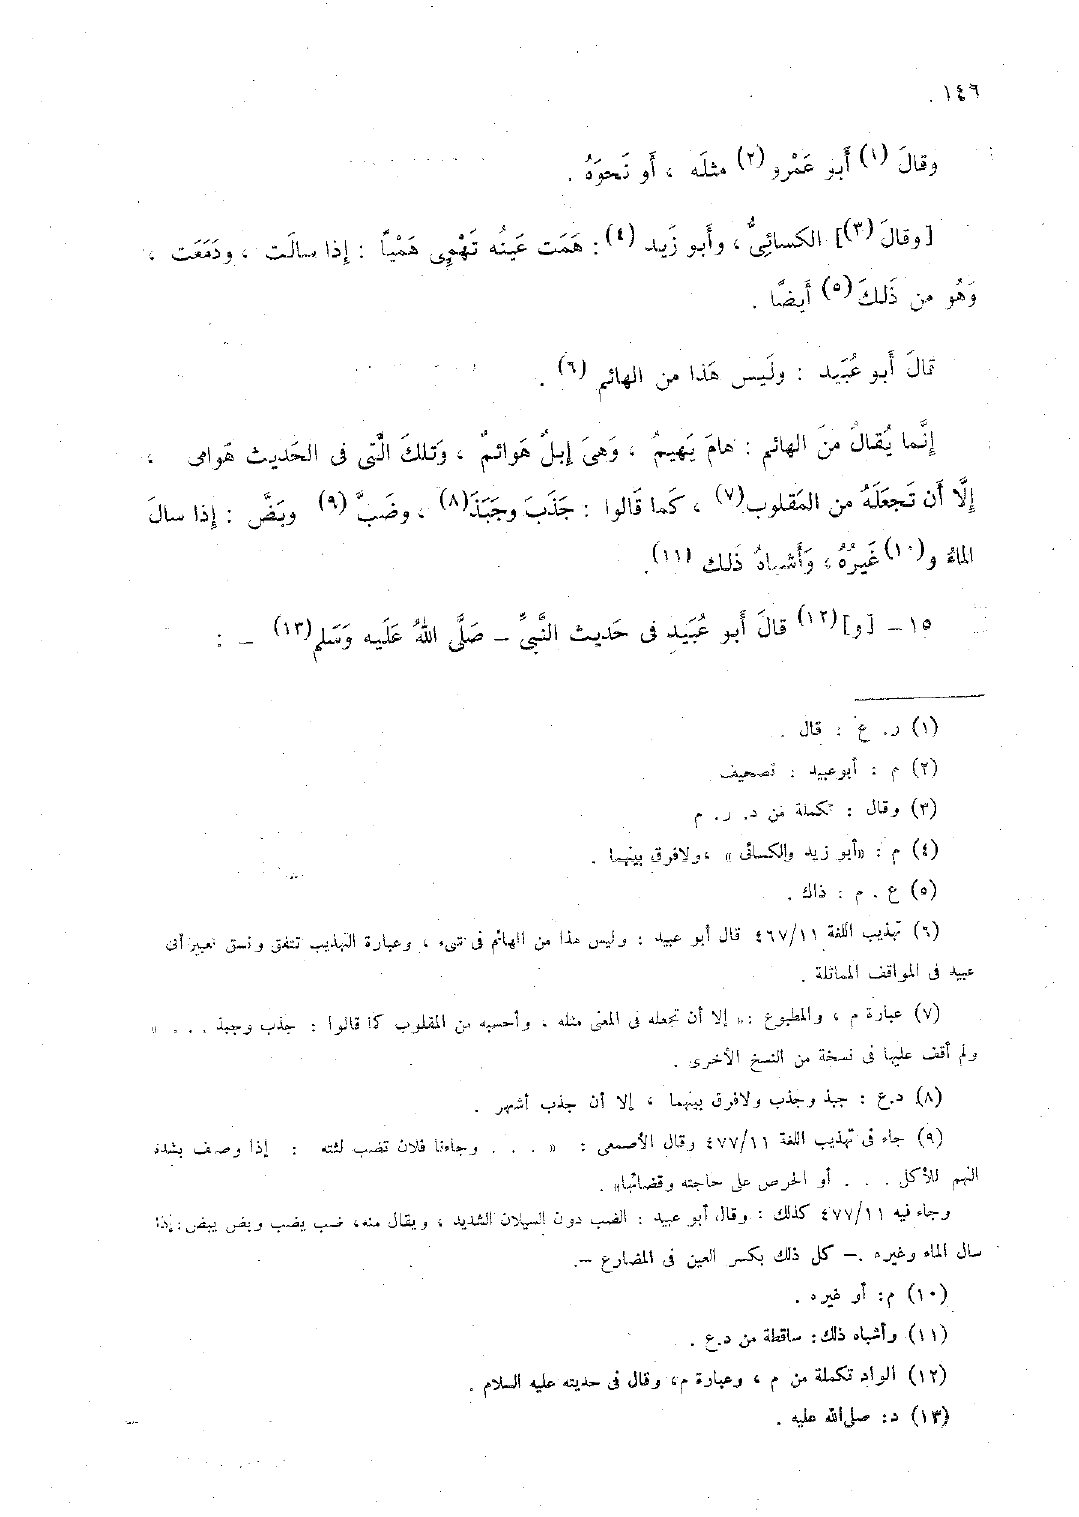 ١٤٦ .
وقالَ (١) أَبو عَمْرو (٢) مثلَه ، أَو نَحوَهُ .
[وقالَ (٣)] الكسائِىُّ ، وأَبو زَيد (٤) : هَمَت عَينُه تَهْمِى هَمْياً : إذا سالَت ، ودَمَعَت ،
وَهُو من ذَلكَ (٥) أَيضًا .
قالَ أَبو عُبَيد : ولَيس هَذا من الهائم (٦) .
إنَّما يُقالُ منَ الهائم : هامَ يَهيمُ ، وَهىَ إبلٌ هَوائمٌ ، وَتلكَ الَّتى فى الحَديث هَوامى ،
إلَّا أَن تَجعَلَهُ من المَقلوب (٧) ، كَما قَالوا : جَذَبَ وجَبَذَ (٨) ، وضَبَّ (٩) وبَضَّ : إذا سالَ
الماءُ و (١٠) غَيرُهُ ، وَأَشباهُ ذَلك (١١) .
١٥ – [و] (١٢) قالَ أَبو عُبَيدٍ فى حَديث النَّبىِّ – صَلَّى اللهُ عَلَيه وَسَلم (١٣) – :
(١) ر. ع : قال .
(٢) م : أبوعبيد : تصحيف
(٣) وقال : تكملة من د. ر. م
(٤) م : «أبو زيد والكسائى» ، ولافرق بينهما .
(٥) ع . م : ذاك .
(٦) تهذيب اللغة ٤٦٧/١١ قال أبو عبيد : وليس هذا من الهائم فى شىء ، وعبارة التهذيب تتفق ونسق تعبير أبى
عبيد فى المواقف المماثلة .
(٧) عبارة م ، والمطبوع : « إلا أن تجعله فى المعنى مثله ، وأحسبه من المقلوب كما قالوا : جذب وجبذ . . . »
ولم أقف عليها فى نسخة من النسخ الأخرى .
(٨) د.ع : جبذ وجذب ولافرق بينهما ، إلا أن جذب أشهر .
(٩) جاء فى تهذيب اللغة ٤٧٧/١١ وقال الأصمعى : « . . . وجاءنا فلان تضب لثته : إذا وصف بشدة
النهم للأكل . . . أو الحرص على حاجته وقضائها» .
وجاء فيه ٤٧٧/١١ كذلك : وقال أبو عبيد : الضب دون السيلان الشديد ، ويقال منه، ضب يضب وبض يبض : إذا
سال الماء وغيره .– كل ذلك بكسر العين فى المضارع –.
(١٠) م: أو غيره .
(١١) وأشباه ذلك: ساقطة من د.ع .
(١٢) الواو تكملة من م ، وعبارة م، وقال فى حديثه عليه السلام .
(١٣) د: صلى الله عليه .